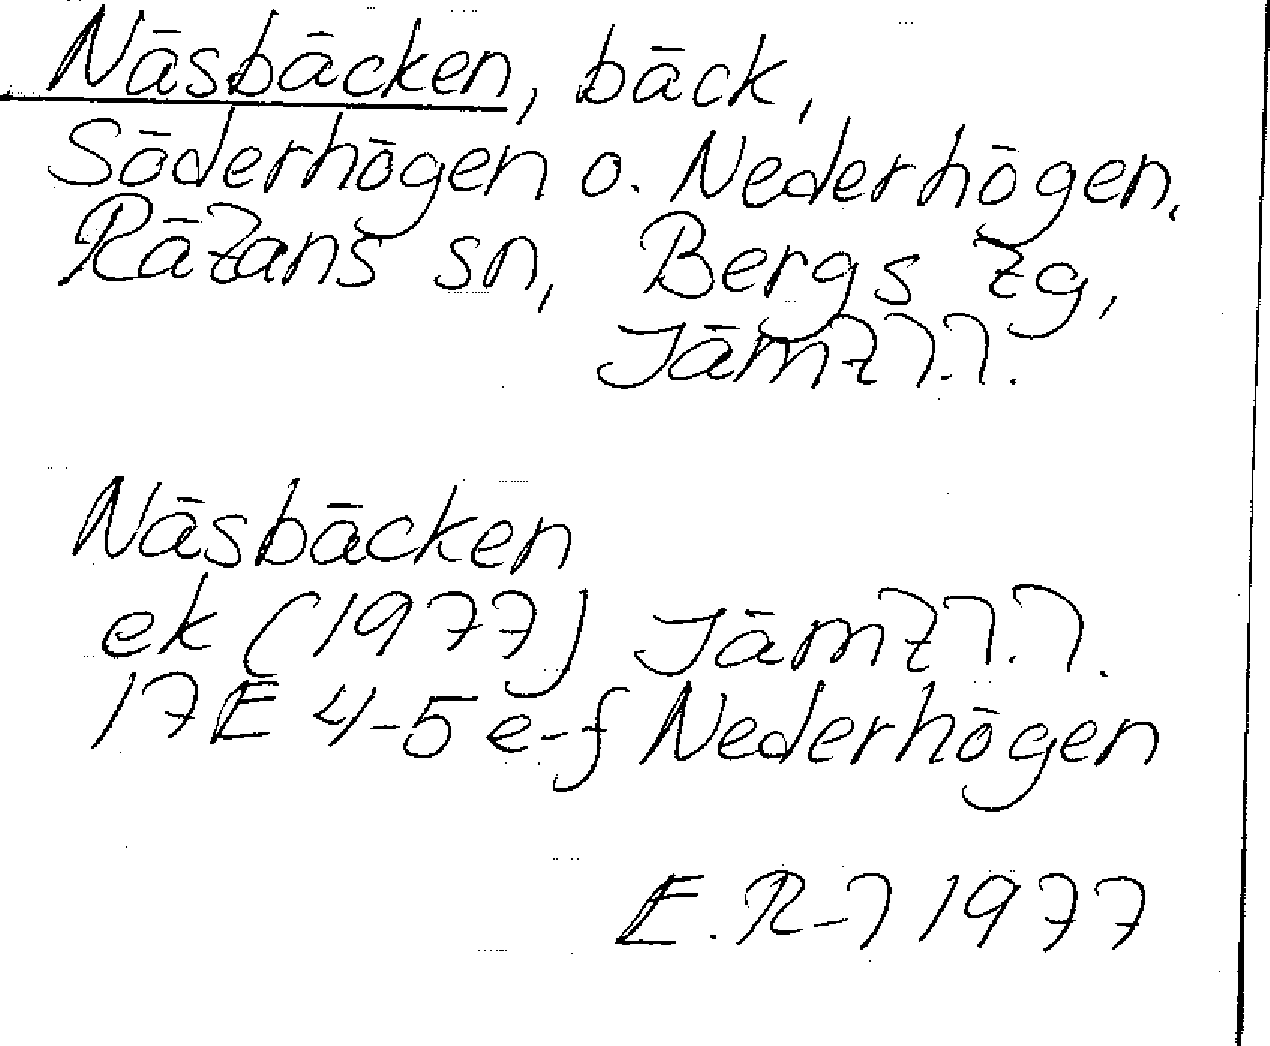 Näsbäcken, bäck,
Söderhögen o. Nederhögen,
Rätans sn, Bergs tg,
Jämtl.l.
Näsbäcken
ek (1977) Jämtl.l.
17E 4-5 e-f Nederhögen
E. R-l 1977